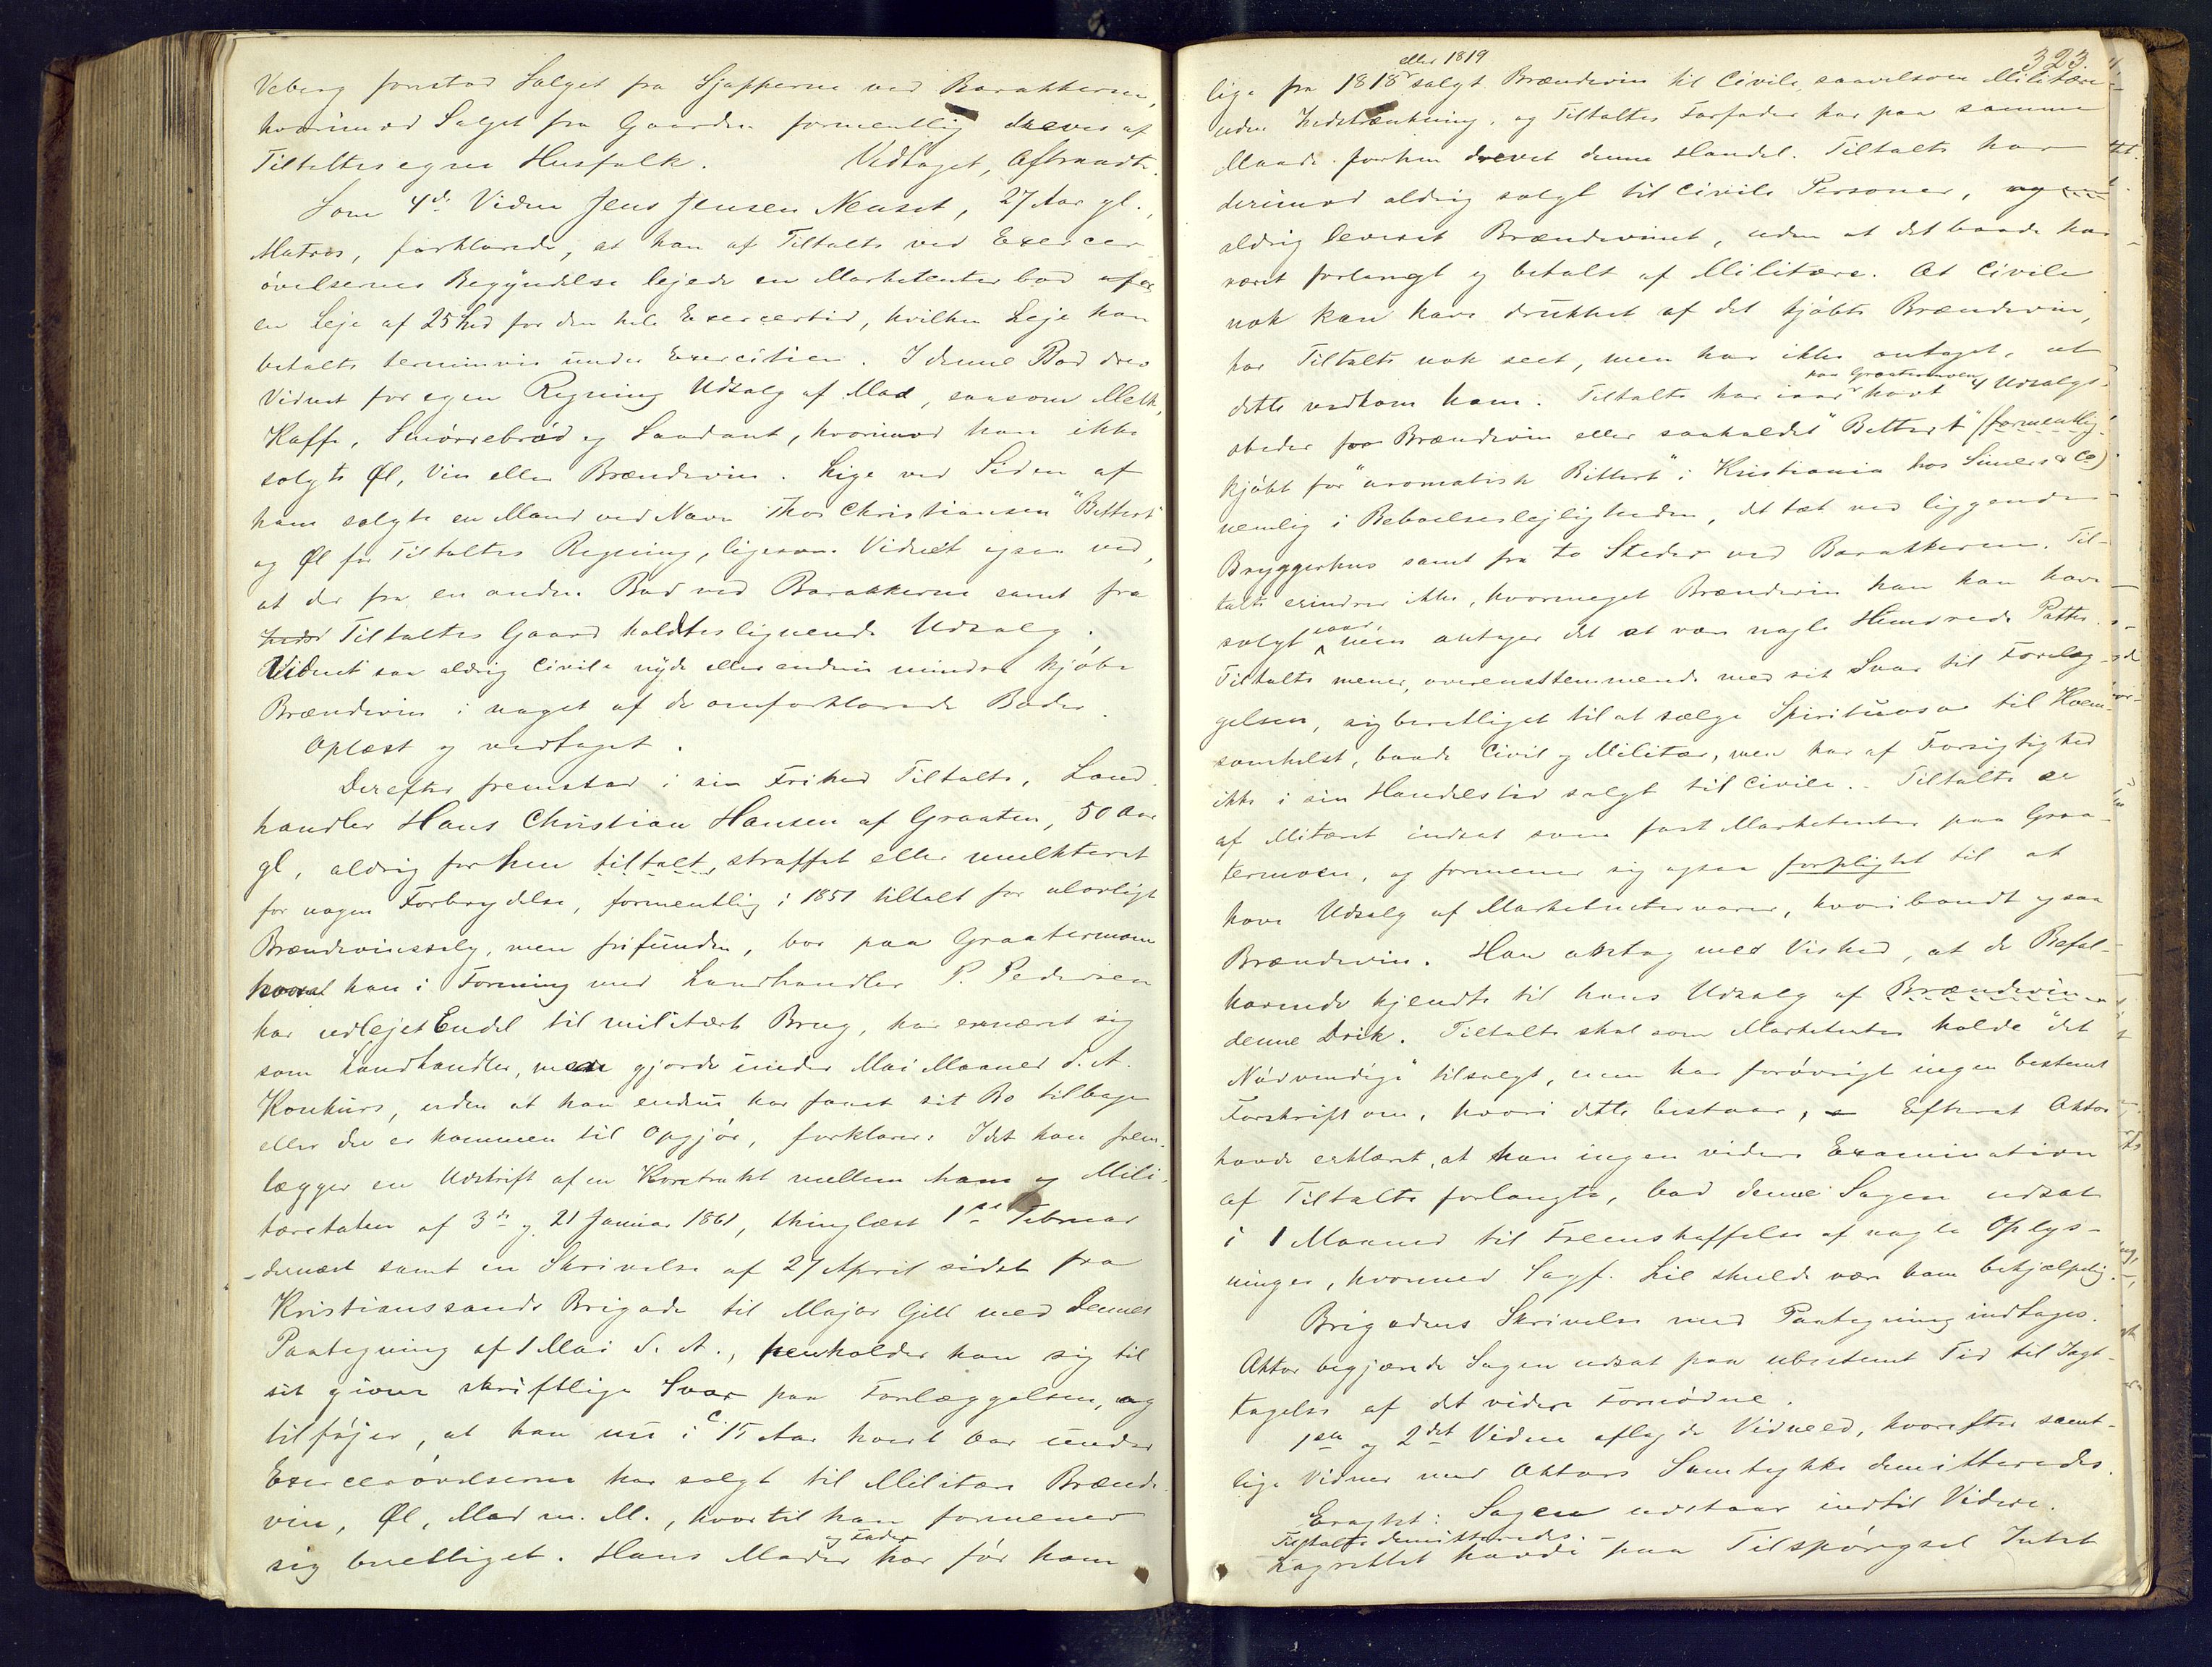 Veberg forestod Salget fra Sjapperne ved Barakkerne,
hvorimod Salget fra Gaarden formentlig dreves af
Tiltaltes egne Husfolk. Vedtaget, Aftraadte.
Som 4de Vidne Jens Jensen Neuset, 27 Aar gl.,
Matros, forklarede, at han af Tiltalte ved Exercer
øvelsernes Begyndelse lejede en Marketenterbod
en Leje af 25 for den hele Exercertid, hvilken Leje han
betalte terminvis under Exercitien. I denne Bod drev
Vidnet for egen Regning Udsalg af Mad, saasom Melk,
Kaffe, Smørrebrød og Saadant, hvorimod han ikke
solgte Øl, Vin eller Brændevin. Lige ved Siden af
ham solgte en Mand ved Navn Thor Christiansen "Bittert"
og Øl for Tiltaltes Regning, ligesom Vidnet ogsaa ved,
at der fra en anden Bod ved Barakkerne samt fra
Tiltaltes Gaard holdtes lignende Udsalg.
Vidnet saa aldrig Civile nyde eller endnu mindre kjøbe
Brændevin i noget af de omforklarede Boder.
Oplæst og vedtaget.
Derefter fremstod i sin Frihed Tiltalte, Land
handler Hans Christian Hansen af Graaten, 50 Aar
gl, aldrig forhen tiltalt, straffet eller mulkteret
for nogen Forbrydelse, formentlig i 1851 tiltalt for ulovligt
Brændevinssalg, men frifunden, bor paa Graatenmoen
han i Forening med Landhandler P. Pedersen
har udlejet Endel til militært Brug, har ernæret sig
som Landhandler, men gjorde under Mai Maaned d. A.
Konkurs, uden at han endnu har faaet sit Bo tilbage
eller der er kommen til Opgjør, forklarer: Idet han frem-
lægger en Udskrift af en Kontrakt mellem ham og Mili-
tæretaten af 3de og 21 Januar 1861, thinglæst 1ste Februar
-dernæst samt en Skrivelse af 27 April sidst fra
Kristianssands Brigade til Major Gill med Dennes
Paategning af 1 Mai d. A., henholder han sig til
sit givne skriftlige Svar paa Forelæggelsen, og
tilføjer, at han nu i c. 15 Aar hvert Aar under
Exercerøvelserne har solgt til Militære Brænde-
vin, Øl, Mad m. M., hvortil han formener
sig berettiget. Hans Moder og Fader har før ham
323.
lige fra 1818 eller 1819 solgt Brændevin til Civile, saavelsom Militære
uden Indskrænkning, og Tiltaltes Forfader har paa samme
Maade forhen drevet denne Handel. Tiltalte har
derimod aldrig solgt til civile Personer, og
aldrig leveret Brændevinet, uden at det baade har
været forlangt og betalt af Militære. At Civile
nok kan have drukket af det kjøbte Brændevin,
har Tiltalte nok seet, men har ikke antaget, at
dette vedkom ham. Tiltalte har iaar paa Graatenmoen havt 4 Udsalgs-
steder for Brændevin eller saakaldet "Bittert" (formentlig
kjøbt for "aromatisk Bittert" i Kristiania hos Simers & Co)
nemlig i Beboelseslejligheden, det tæt ved liggende
Bryggerhus samt fra to Steder ved Barakkerne. Til-
talte erindrer ikke, hvormeget Brændevin han kan have
solgt iaar, men antager det at være nogle Hundrede Potter.
Tiltalte mener, overensstemmende med sit Svar til Forelæg-
gelsen, sig berettiget til at sælge Spirituosa til Hvem-
somhelst, baade Civil og Militær, men har af Forsigtighed
ikke i sin Handelstid solgt til Civile. Tiltalte er
af Militæret indsat som fast Marketenter paa Graa-
tenmoen, og formener sig ogsaa forpligtet til at
have Udsalg af Marketentervarer, hvoriblandt ogsaa
Brændevin. Han antog med Vished, at de Befal-
havende kjendte til hans Udsalg af Brændevin
denne Drik. Tiltalte skal som Marketenter holde "det
Nødvendige" tilsalgs, men har forøvrigt ingen bestemt
Forskrift om, hvori dette bestaar. Efterat Aktor
havde erklæret, at han ingen videre Examination
af Tiltalte forlangte, bad denne Sagen udsat
i 1 Maaned til Fremskaffelse af nogle Oplys-
ninger, hvormed Sagf. Lie skulde være ham behjælpelig.
Brigadens Skrivelse med Paategning indtages.
Aktor begjærede Sagen udsat paa ubestemt Tid til Iagt-
tagelse af det videre Fornødne.
1ste og 2det Vidne aflagde Vidneed, hvorefter samt-
lige Vidner med Aktors Samtykke demitteredes.
Eragtet: Sagen udstaar indtil Videre.
Tiltalte demitteredes. -
Lagrettet havde paa Tilspørgsel Intet